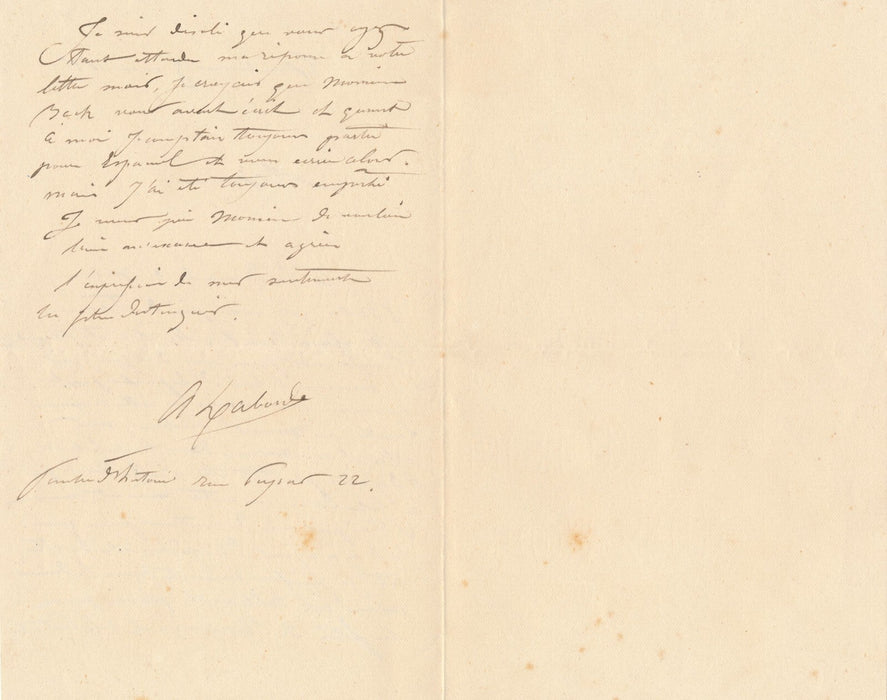 Je suis désolé que vous ayez
tant attendu ma réponse à votre
lettre mais, je croyais que Monsieur
Back vous avait écrit et quant
à moi je comptais toujours partir
pour Espagne et vous écrire alors.
mais j'ai été toujours empêché
Je vous prie Monsieur de vouloir
bien m'excuser et agréer
l'expression de mes sentiments
les plus distingués.
A Laborde
Peintre d'histoire rue 22.